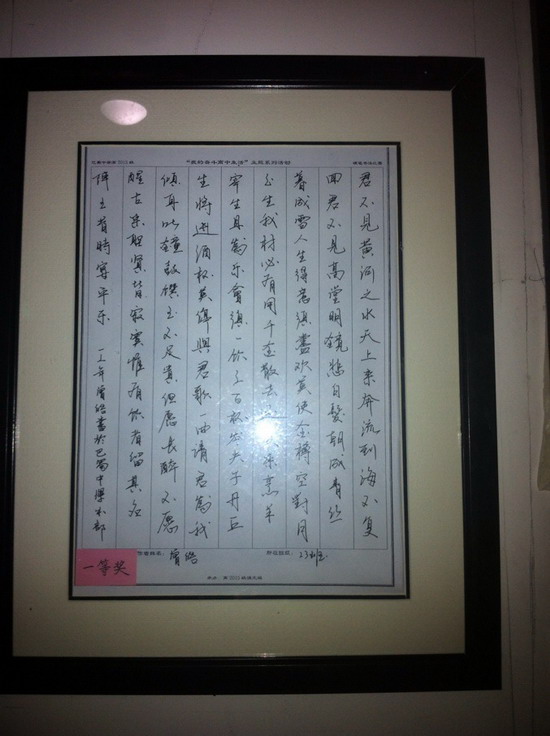 “我的奋斗高中生活”主题系列活动
硬笔书法比赛
君不見黃河之水天上來奔流到海不復
回君不見高堂明鏡悲白髮朝成青絲
暮成雪人生得意須盡歡莫使金樽空對月
天生我材必有用千金散去來烹羊
宰牛且為樂會須一飲三百杯岑夫子丹丘
生將進酒杯莫停與君歌一曲請君為我
傾耳聽鐘鼓饌玉不足貴但愿長醉不愿
醒古來聖賢皆寂寞惟有飲者留其名
陳王昔時宴平樂 一一年曾皓書於巴蜀中學本部
作者姓名：曾皓
所在班级：23班
一等奖